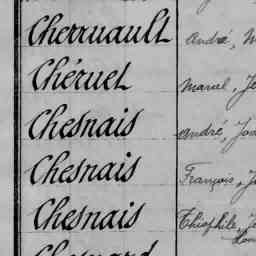 Cherruault André,
Chéruel Marcel, Je
Chesnais André, Jos
Chesnais François, J
Chesnais Théophile, J
Chesnard